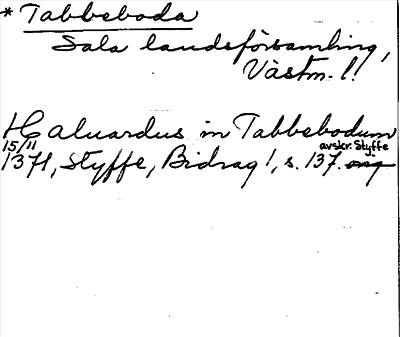 * Tabbeboda
Sala landsförsamling,
Västm. l.
Haluardus in Tabbebodum
15/11 avskr. Styffe
1371, Styffe, Bidrag 1, s. 137. orig